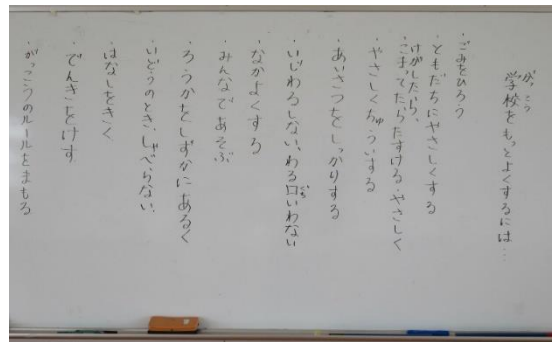 学校をもっとよくするには…
・ごみをひろう
・ともだちにやさしくする
けがしたら、
こまってたらたすける・やさしく
・やさしくちゅういする
・あいさつをしっかりする
・いじわるしない、わる口いわない
・なかよくする
・みんなであそぶ
・ろうかをしずかにあるく
・いどうのとき、しゃべらない
・はなしをきく
・でんきをけす
・がっこうのルールをまもる